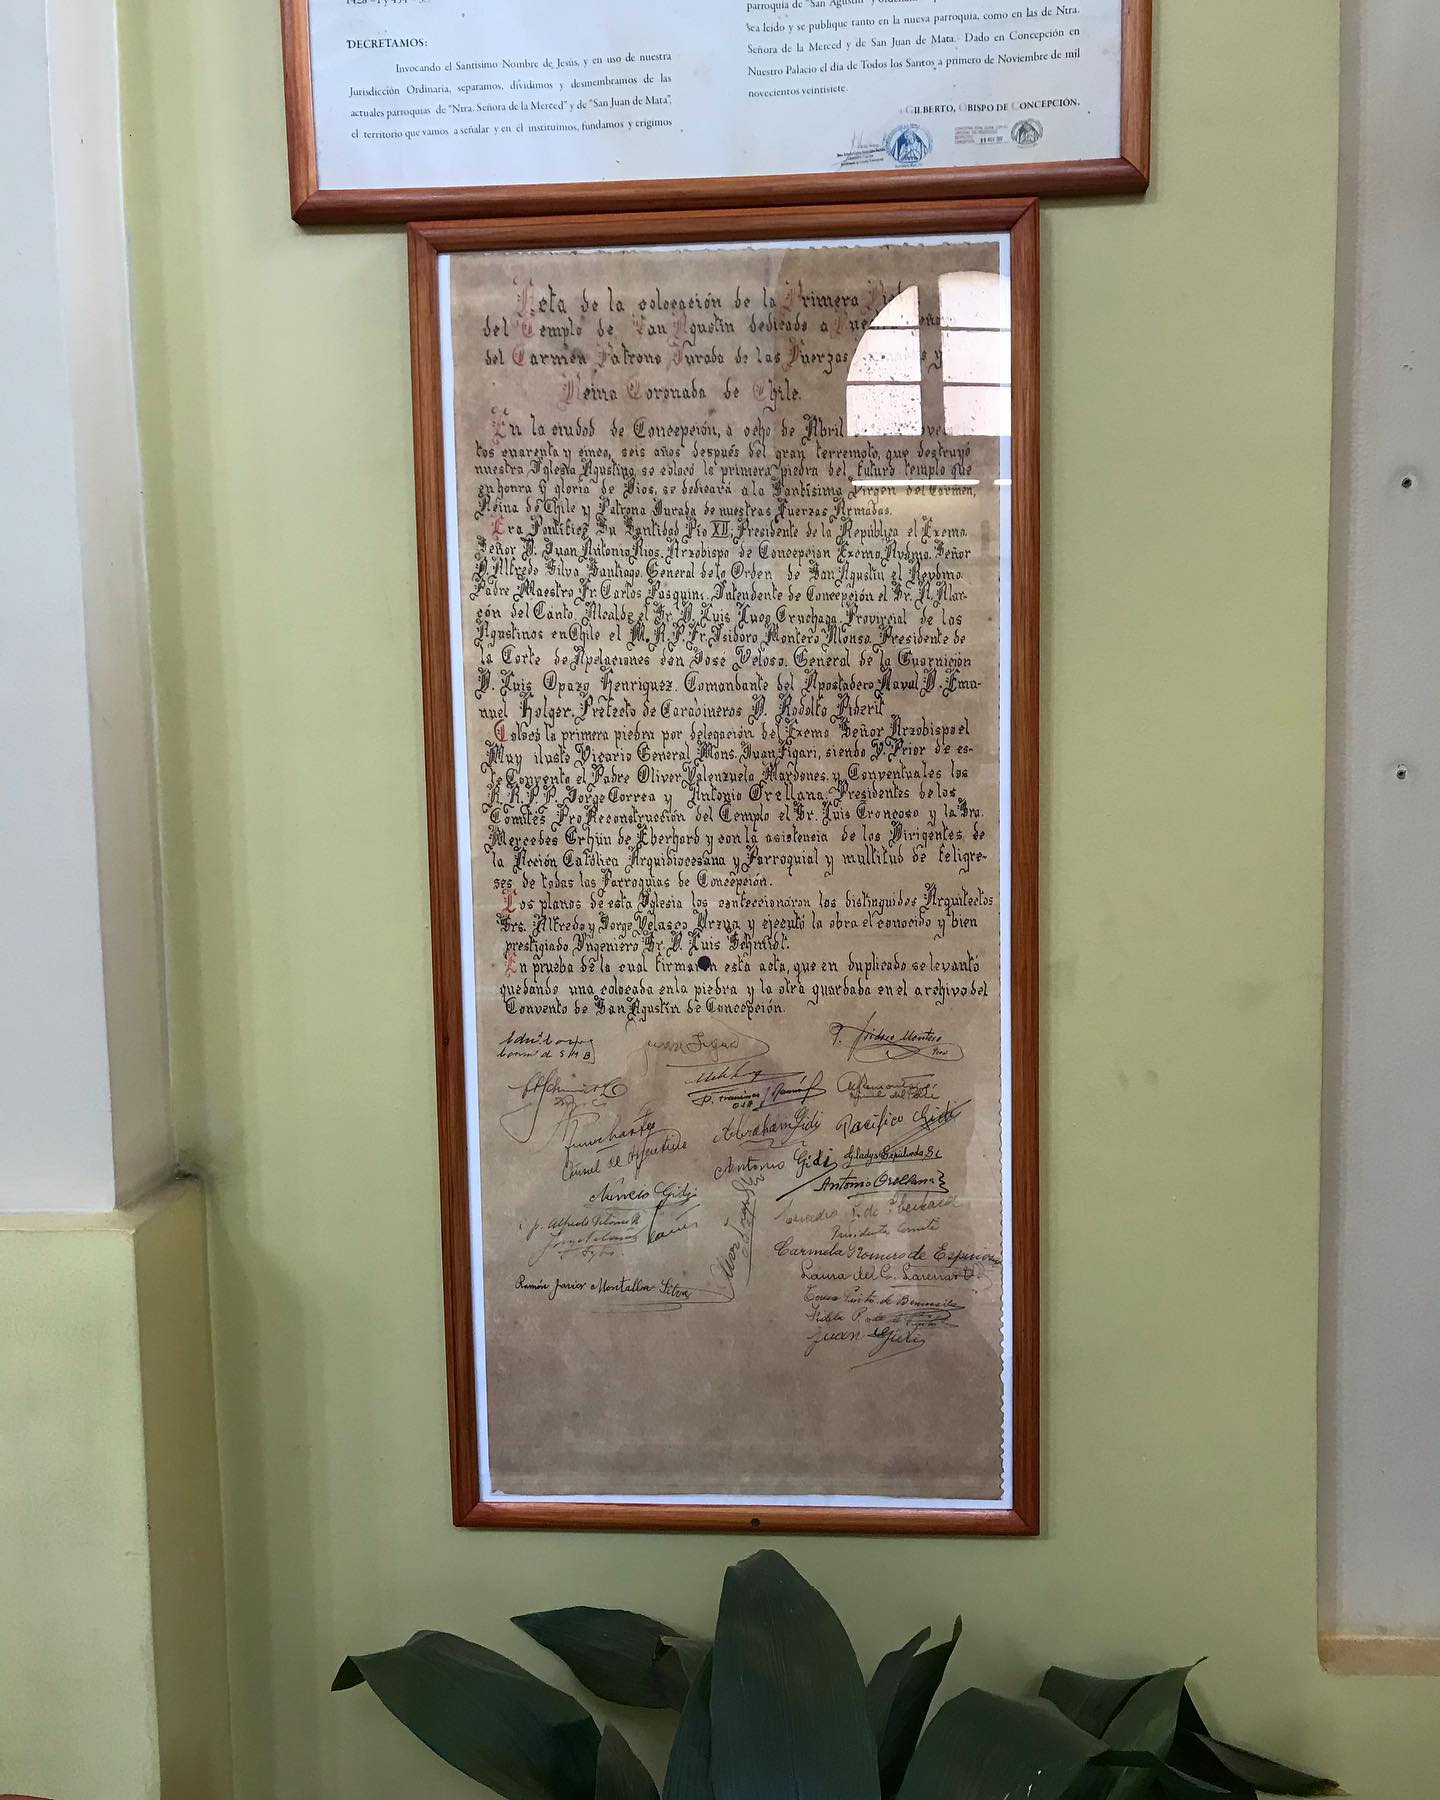 DECRETAMOS:
Invocando el Santísimo Nombre de Jesús, y en uso de nuestra
Jurisdicción Ordinaria, separamos, dividimos y desmembramos de las
actuales parroquias de "Ntra. Señora de la Merced" y de "San Juan de Mata",
el territorio que vamos a señalar y en él instituimos, fundamos y erigimos
parroquia de "San Agustín" y
sea leído y se publique tanto en la nueva parroquia, como en las de Ntra.
Señora de la Merced y de San Juan de Mata. Dado en Concepción en
Nuestro Palacio el día de Todos los Santos a primero de Noviembre de mil
novecientos veintisiete.
GILBERTO, OBISPO DE CONCEPCIÓN.
Acta de la colocación de la Primera
del Templo de San Agustín dedicado a
del Carmen Patrona Jurada de las Fuerzas y
Reina Coronada de Chile.
En la ciudad de Concepción, a ocho de Abril
tos cuarenta y cinco, seis años después del gran terremoto, que destruyó
nuestra Iglesia Agustina se colocó la primera piedra del futuro templo que
en honra y gloria de Dios, se dedicará a la Santísima Virgen del Carmen,
Reina de Chile y Patrona Jurada de nuestras Fuerzas Armadas.
Era Pontífice Su Santidad Pío XII; Presidente de la República el Exemo.
Señor D. Juan Antonio Rios. Arzobispo de Concepción Exemo. Rvdmo. Señor
D. Alfredo Silva Santiago. General de la Orden de San Agustín el Revdmo.
Padre Maestro Fr. Carlos Pasquini. Intendente de Concepción el Sr. A. Alar-
cón del Canto. Alcalde el Sr. D. Luis Lugo Cruchaga. Provincial de los
Agustinos en Chile el M. R. P. Fr. Isidoro Montero Alonso. Presidente de
la Corte de Apelaciones don José Veloso. General de la Guarnición
D. Luis Opazo Henriquez. Comandante del Apostadero Naval D. Ema-
nuel Holger. Prefecto de Carabineros D. Rodolfo Piderit
Colocó la primera piedra por delegación del Exemo Señor Arzobispo el
Muy iluste Vicario General Mons. Juan Figari, siendo V. Prior de es-
te Convento el Padre Oliver Valenzuela Mardones y Conventuales los
R. R. P. P. Jorge Correa y Antonio Orellana. Presidentes de los
Comités Pro Reconstrucción del Templo el Sr. Luis Troncoso y la Sra.
Mercedes de Eberhard y con la asistencia de los Dirigentes de
la Acción Católica Arquidiocesana y Parroquial y multitud de feligre-
ses de todas las Parroquias de Concepción.
Los planos de esta Iglesia los confeccionaron los distinguidos Arquitectos
Srs. Alfredo y Jorge Velasco Urzua y ejecutó la obra el conocido y bien
prestigiado Ingeniero Sr. D. Luis Schmidt.
En prueba de lo cual firmaron esta acta, que en duplicado se levantó
quedando una colocada en la piedra y la otra guardada en el archivo del
Convento de San Agustín de Concepción.
Juan Figari
P. Isidoro Montero
Abraham Gidi
Pacífico Gidi
Cónsul de Argentina
Antonio Gidi
Gladys Sepúlveda S.
Nuncio Gidi
Antonio Orellana
Presidenta Comité
Carmela Romero de Espinosa
Ramón Javier Montalba Silva
Juan Gidi